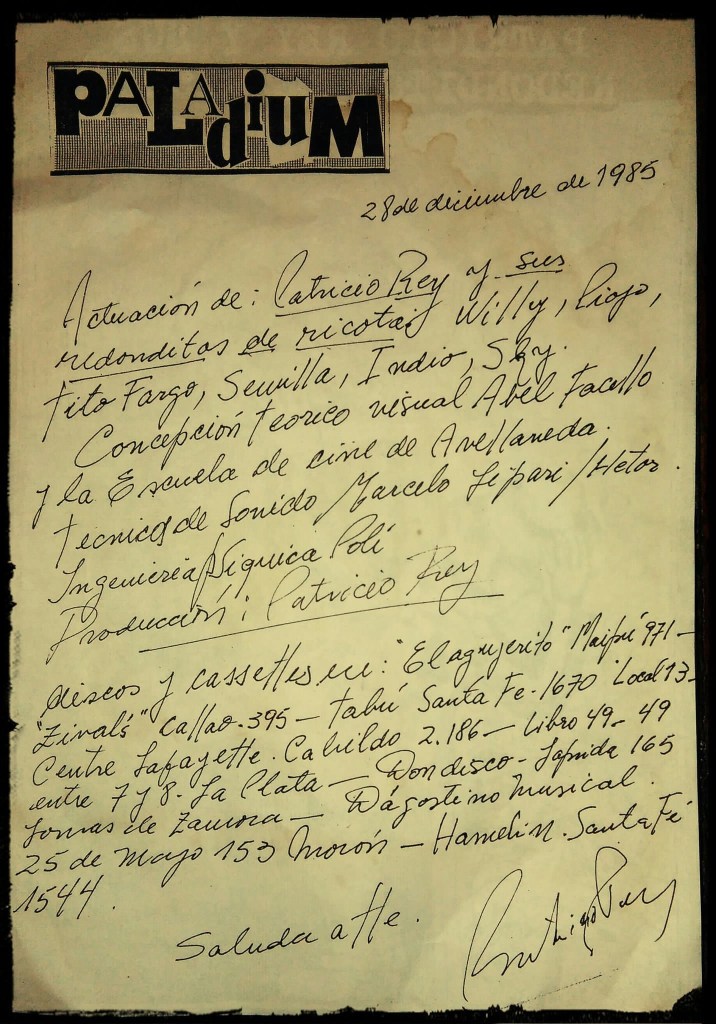 PALAdiuM
28 de diciembre de 1985
Actuación de: Patricio Rey y sus
redonditos de ricota: Willy, Piojo,
Tito Fargo, Semilla, Indio, Sky.
Concepción teorico visual Abel Facello
y la Escuela de cine de Avellaneda.
Tecnicos de Sonido Marcelo Lipari / Hetor.
Ingenieria Psiquica Poli
Producción: Patricio Rey
discos y cassettes en: "El agujerito" Maipú 971 -
"Zival's" Callao. 395 - Tabú Santa Fe. 1670 Local 13 -
Centre Lafayette. Cabildo 2.186 - Libro 49 - 49
entre 7 y 8. La Plata - Dondisco - Laprida 165
Lomas de Zamora - D'agostino Musical.
25 de Mayo 153 Morón - Hamelin. Santa Fé
1544.
Saluda atte.